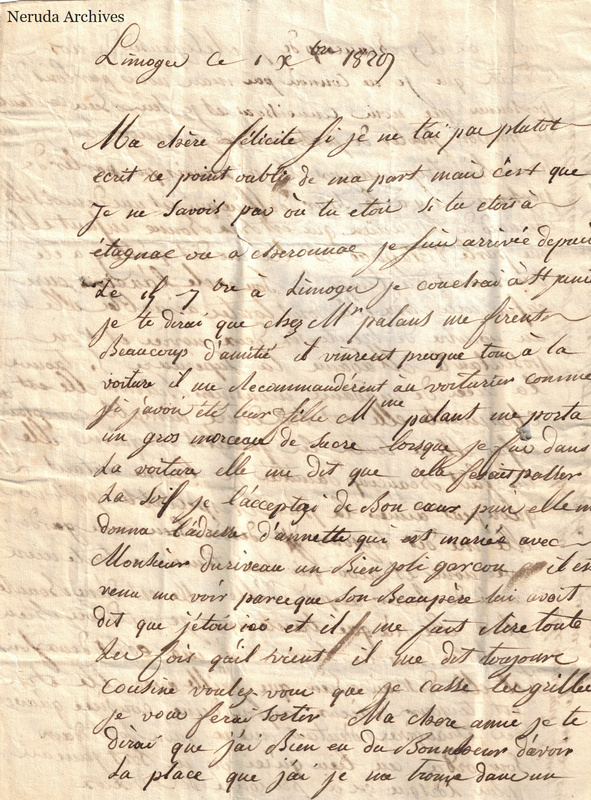 Neruda Archives
Limoges ce 1 Xbre 1829
Ma chère félicité si je ne tai pas plutot
écrit ce point oubli de ma part mais c'est que
Je ne savois pas où tu étois si tu étois à
étagnac ou a cheronnac je suis arrivée depuis
Le 15 7bre à Limoges je couchai à St juni
je te dirai que chez Mr palant me firent
Beaucoup d'amitié il vinrent presque tous à la
voiture il me Recommandérent au voiturier comme
si j'avois été leur fille Mme palant me porta
un gros morceau de sucre lorsque je fus dans
La voiture elle me dit que cela ferait passer
La soif je l'acceptai de Bon cœur puis elle m
donna l'adresse d'annette qui est mariée avec
Monsieur duriveau un Bien joli garcon il est
venu me voir parceque son Beaupère lui avoit
dit que j'étois ici et il me fait Rire toute
Les fois qu'il vient il me dit toujours
cousine voulez vous que je casse les grilles
je vous ferai sortir Ma chere amie je te
dirai que j'ai Bien eu du Bonheur d'avoir
La place que j'ai je me trouve dans un